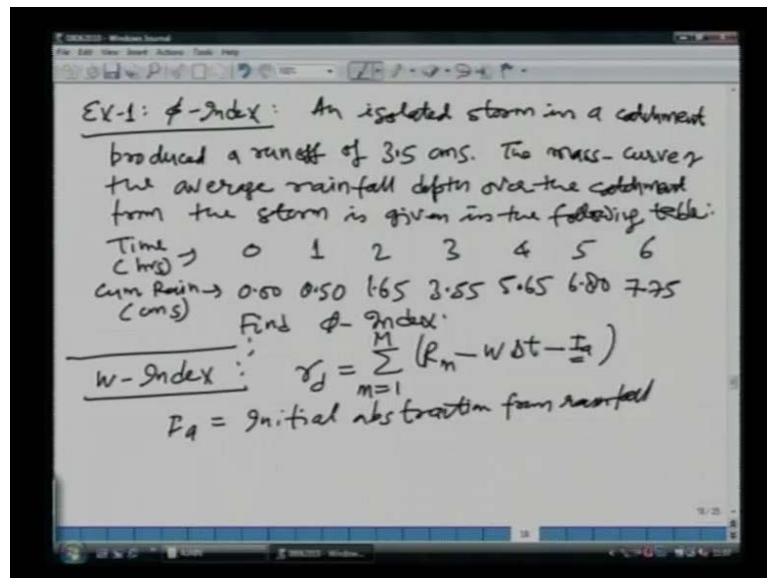 Windows Journal
File Edit View Insert Actions Tools Help
Ex-1: φ-Index: An isolated storm in a catchment
produced a runoff of 3.5 cms. The mass-curve of
the average rainfall depth over the catchment
from the storm is given in the following table:
Time (hrs) → 0 1 2 3 4 5 6
Cum Rain → 0.00 0.50 1.65 3.55 5.65 6.80 7.75
(cms)
Find φ-Index.
W-Index: r_d = Σ_{m=1}^{M} (R_m - W Δt - I_a)
I_a = Initial abstraction from rainfall
18